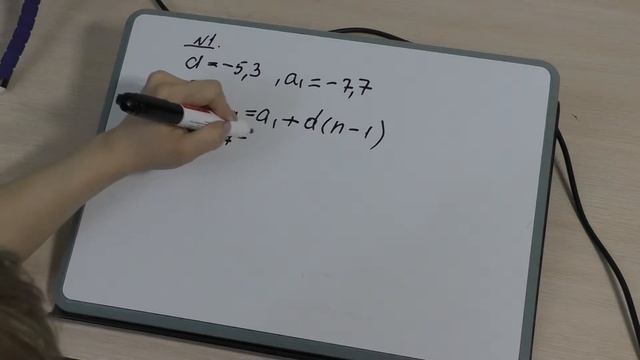 N1.
d = -5,3 , a₁ = -7,7
= a₁ + d(n-1)